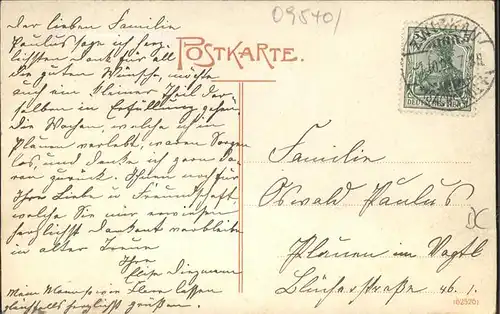 09540/
Der lieben Familie
Paulus sage ich herz-
lichsten Dank für all
die guten Wünsche, möchte
auch ein kleiner Theil der-
selben in Erfüllung gehen.
Die Wochen, welche ich in
Plauen verlebt, waren Sorgen-
los, und denke ich gern da-
ran zurück. Ihnen noch für
Ihre Liebe u Freundschaft
welche Sie mir erwiesen
herzlichst dankend verbleibe
in alter Treue
Ihre
Elise
Mein Mann sowie lassen
gleichfalls herzlichst grüßen.
POSTKARTE.
ZWICKAU
DEUTSCHES REICH
Familie
Oswald Paulus
Plauen im Vogtl
Blücherstraße 46. I.
102570